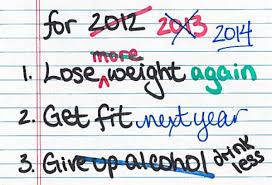 for 2012 2013 2014
1. Lose more weight again
2. Get fit next year
3. Give up alcohol drink less